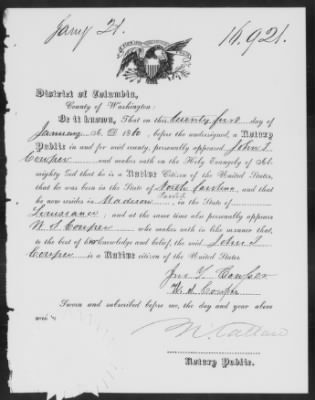 Jany 21.
16,921.
District of Columbia,
County of Washington:
Be it known, That on this twenty first day of
January A D 1860, before the undersigned, a Notary
Public in and for said county, personally appeared John L
Cowper and makes oath on the Holy Evangely of Al-
mighty God that he is a Native Citizen of the United States,
that he was born in the State of North Carolina, and that
he now resides in Madison Parish, in the State of
Louisiana; and at the same time also personally appears
W. D Cowper who makes oath in like manner that,
to the best of his knowledge and belief, the said John L
Cowper is a Native citizen of the United States.
Jno L Cowper
W. D Cowper
Sworn and subscribed before me, the day and year above
N. Callan
Notary Public.